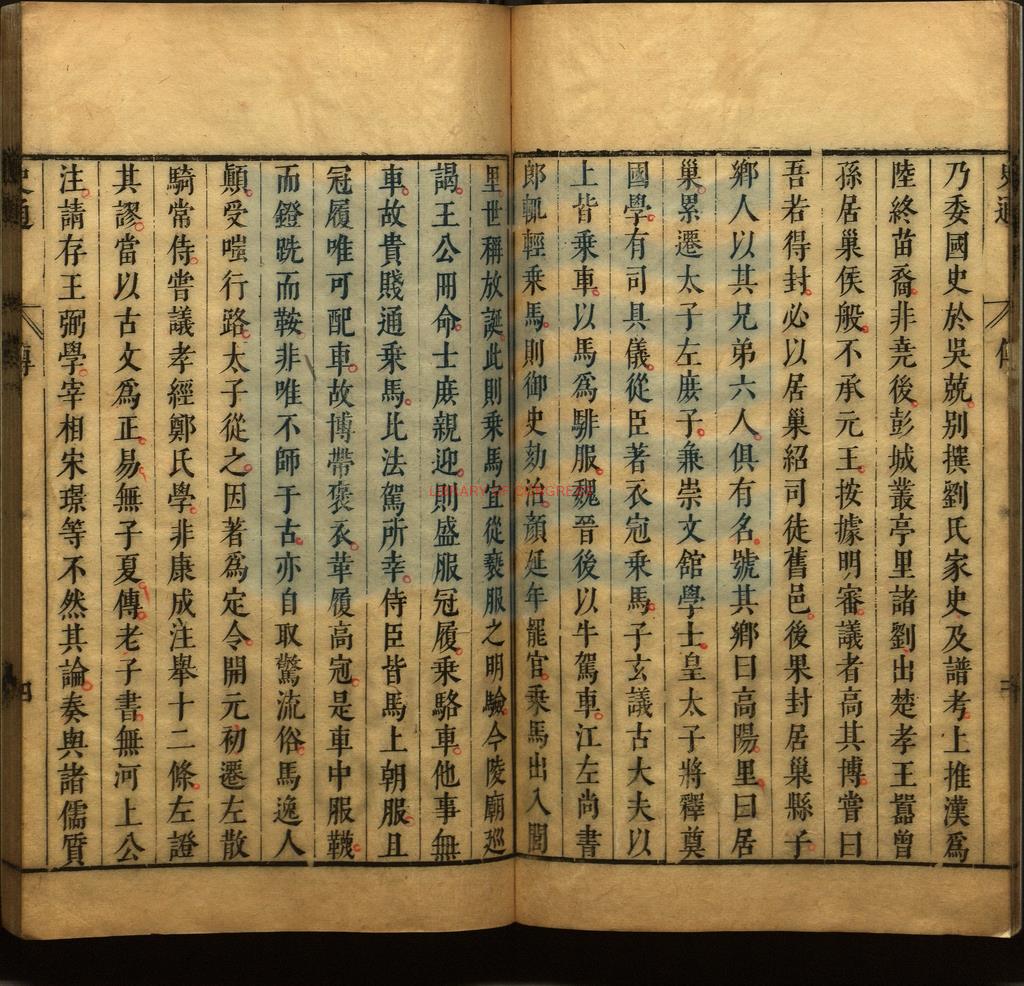 史通
傳
乃委國史於吳兢別撰劉氏家史及譜考上推漢爲
陸終苗裔非堯後彭城叢亭里諸劉出楚孝王囂曾
孫居巢侯般不承元王按據明審議者高其博嘗曰
吾若得封必以居巢紹司徒舊邑後果封居巢縣子
鄉人以其兄弟六人俱有名號其鄉曰高陽里曰居
巢累遷太子左庶子兼崇文館學士皇太子將釋奠
國學有司具儀從臣著衣冠乘馬子玄議古大夫以
上皆乘車以馬爲騑服魏晉後以牛駕車江左尚書
郎輒輕乘馬則御史劾治顏延年罷官乘馬出入閭
里世稱放誕此則乘馬宜從褻服之明驗今陵廟巡
謁王公冊命士庶親迎則盛服冠履乘駱車他事無
車故貴賤通乘馬比法駕所幸侍臣皆馬上朝服且
冠履唯可配車故博帶褒衣革履高冠是車中服韈
而鐙跣而鞍非唯不師于古亦自取驚流俗馬逸人
顛受嗤行路太子從之因著爲定令開元初遷左散
騎常侍嘗議孝經鄭氏學非康成注舉十二條左證
其謬當以古文爲正易無子夏傳老子書無河上公
注請存王弼學宰相宋璟等不然其論奏與諸儒質
史通
傳
四
LIBRARY OF CONGRESS